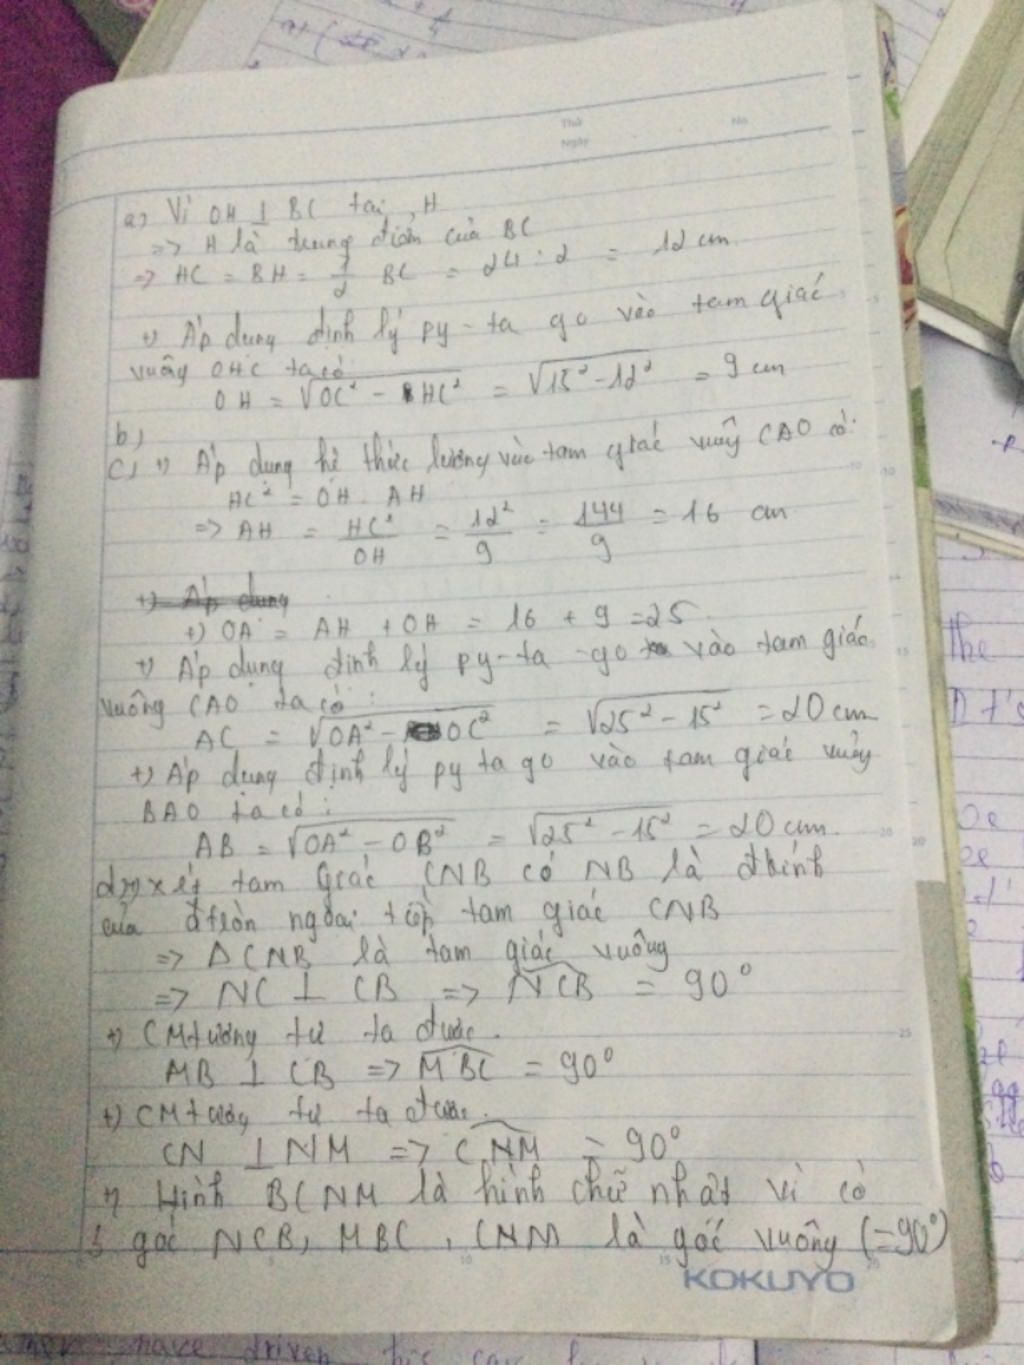 Thứ
Ngày
No.
a) Vì OH ⊥ BC tại H
=> H là trung điểm của BC
=> HC = BH = 1/2 BC = 24 : 2 = 12 cm
+) Áp dụng định lý py-ta go vào tam giác
vuông OHC ta có
OH = √OC² - HC² = √15² - 12² = 9 cm
b)
c) +) Áp dụng hệ thức lượng vào tam giác vuông CAO có:
HC² = OH . AH
=> AH = HC²/OH = 12²/9 = 144/9 = 16 cm
+) Áp dụng
+) OA = AH + OH = 16 + 9 = 25
+) Áp dụng định lý py-ta-go vào tam giác
vuông CAO ta có :
AC = √OA² - OC² = √25² - 15² = 20 cm
+) Áp dụng định lý py ta go vào tam giác vuông
BAO ta có :
AB = √OA² - OB² = √25² - 15² = 20 cm
d) xét tam giác CNB có NB là đkính
của đtròn ngoại tiếp tam giác CNB
=> Δ CNB là tam giác vuông
=> NC ⊥ CB => NCB = 90°
+) CM tương tự ta được.
MB ⊥ CB => MBC = 90°
+) CM tương tự ta được.
CN ⊥ NM => CNM = 90°
+) Hình BCNM là hình chữ nhật vì có
3 góc NCB, MBC, CNM là góc vuông (=90°)
KOKUYO
the
have driven his car